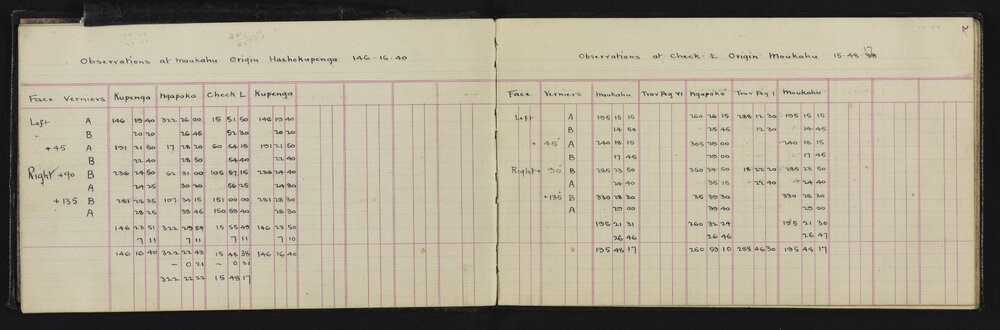 Observations at Moukahu Origin Haehokupenga 146-16-40
Face Verniers Kupenga Ngapoko Check L Kupenga
Left A 146 19 40 322 26 00 15 51 50 146 19 40
" B 20 20 26 46 52 30 20 20
+45 A 191 21 50 17 28 20 60 54 15 191 21 50
B 22 40 28 50 54 40 22 40
Right +90 B 236 24 50 62 31 00 105 57 15 236 24 40
A 24 25 30 20 56 25 24 30
+135 B 281 28 35 107 34 15 151 00 00 281 28 30
A 28 25 33 46 150 59 40 28 30
146 23 51 322 29 54 15 55 49 146 23 50
7 11 7 11 7 11 7 10
146 16 40 322 22 43 15 48 38 146 16 40
- 0 21 - 0 21
322 22 22 15 48 17
2
Observations at Check L Origin Moukahu 15-48-38 17
Face Verniers Moukahu Trav Peg VI Ngapoko Trav Peg 1 Moukahu
Left A 195 15 15 260 26 15 288 12 30 195 15 15
B 14 50 25 45 12 30 14 45
+45° A 240 18 15 305 29 00 240 18 15
B 17 45 29 00 17 45
Right + 90° B 285 23 50 350 34 50 18 22 20 285 23 50
A 24 40 35 15 - 22 40 24 40
+135° B 330 28 30 35 39 30 330 28 30
A 29 00 39 40 29 00
195 21 31 260 32 24 195 21 30
26 46 26 46 26 47
195 48 17 260 59 10 288 46 30 195 48 17